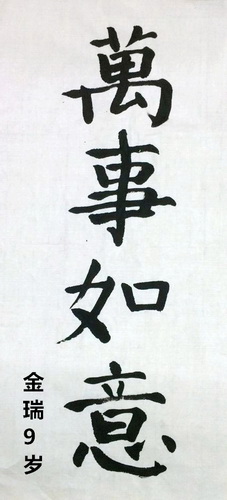 萬事如意
金瑞9岁